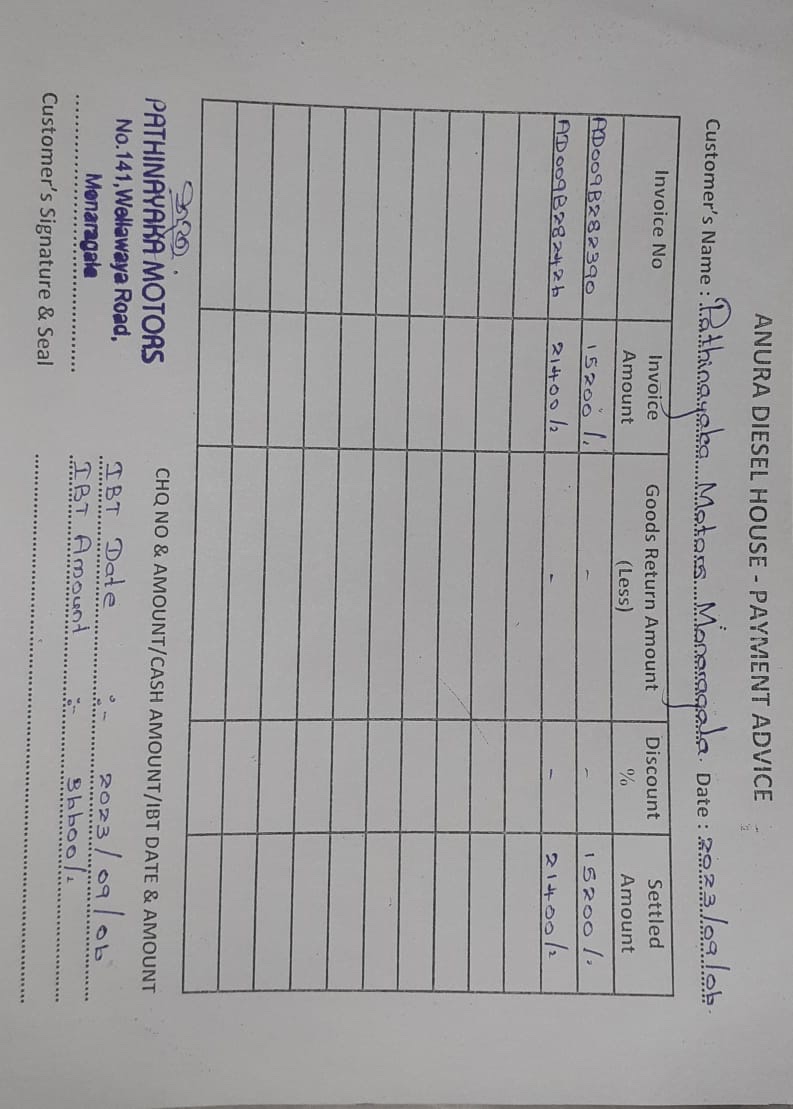 ANURA DIESEL HOUSE - PAYMENT ADVICE
Customer's Name : Pathinayaka Motors Monaragala. Date : 2023/09/06.
Invoice No Invoice Amount Goods Return Amount (Less) Discount % Settled Amount
AD009B282390 15200/. - - 15200/.
AD009B282426 21400/= - - 21400/=
PATHINAYAKA MOTORS
No.141,Wellawaya Road,
Monaragala
Customer's Signature & Seal
CHQ NO & AMOUNT/CASH AMOUNT/IBT DATE & AMOUNT
IBT Date :- 2023/09/06
IBT Amount :- 36600/=